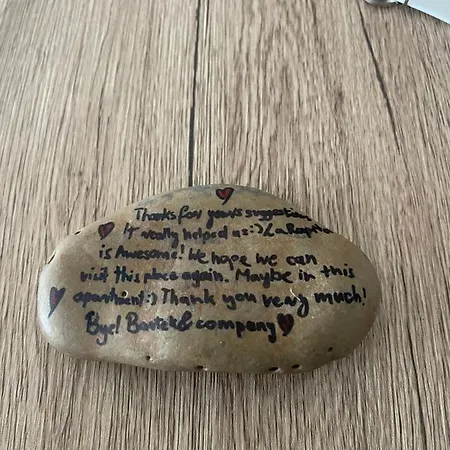 Thanks for yours suggestions
It really helped us :) La Rapita
is Awesome! We hope we can
visit this place again. Maybe in this
apartment :) Thank you very much!
Bye! Bartek & company